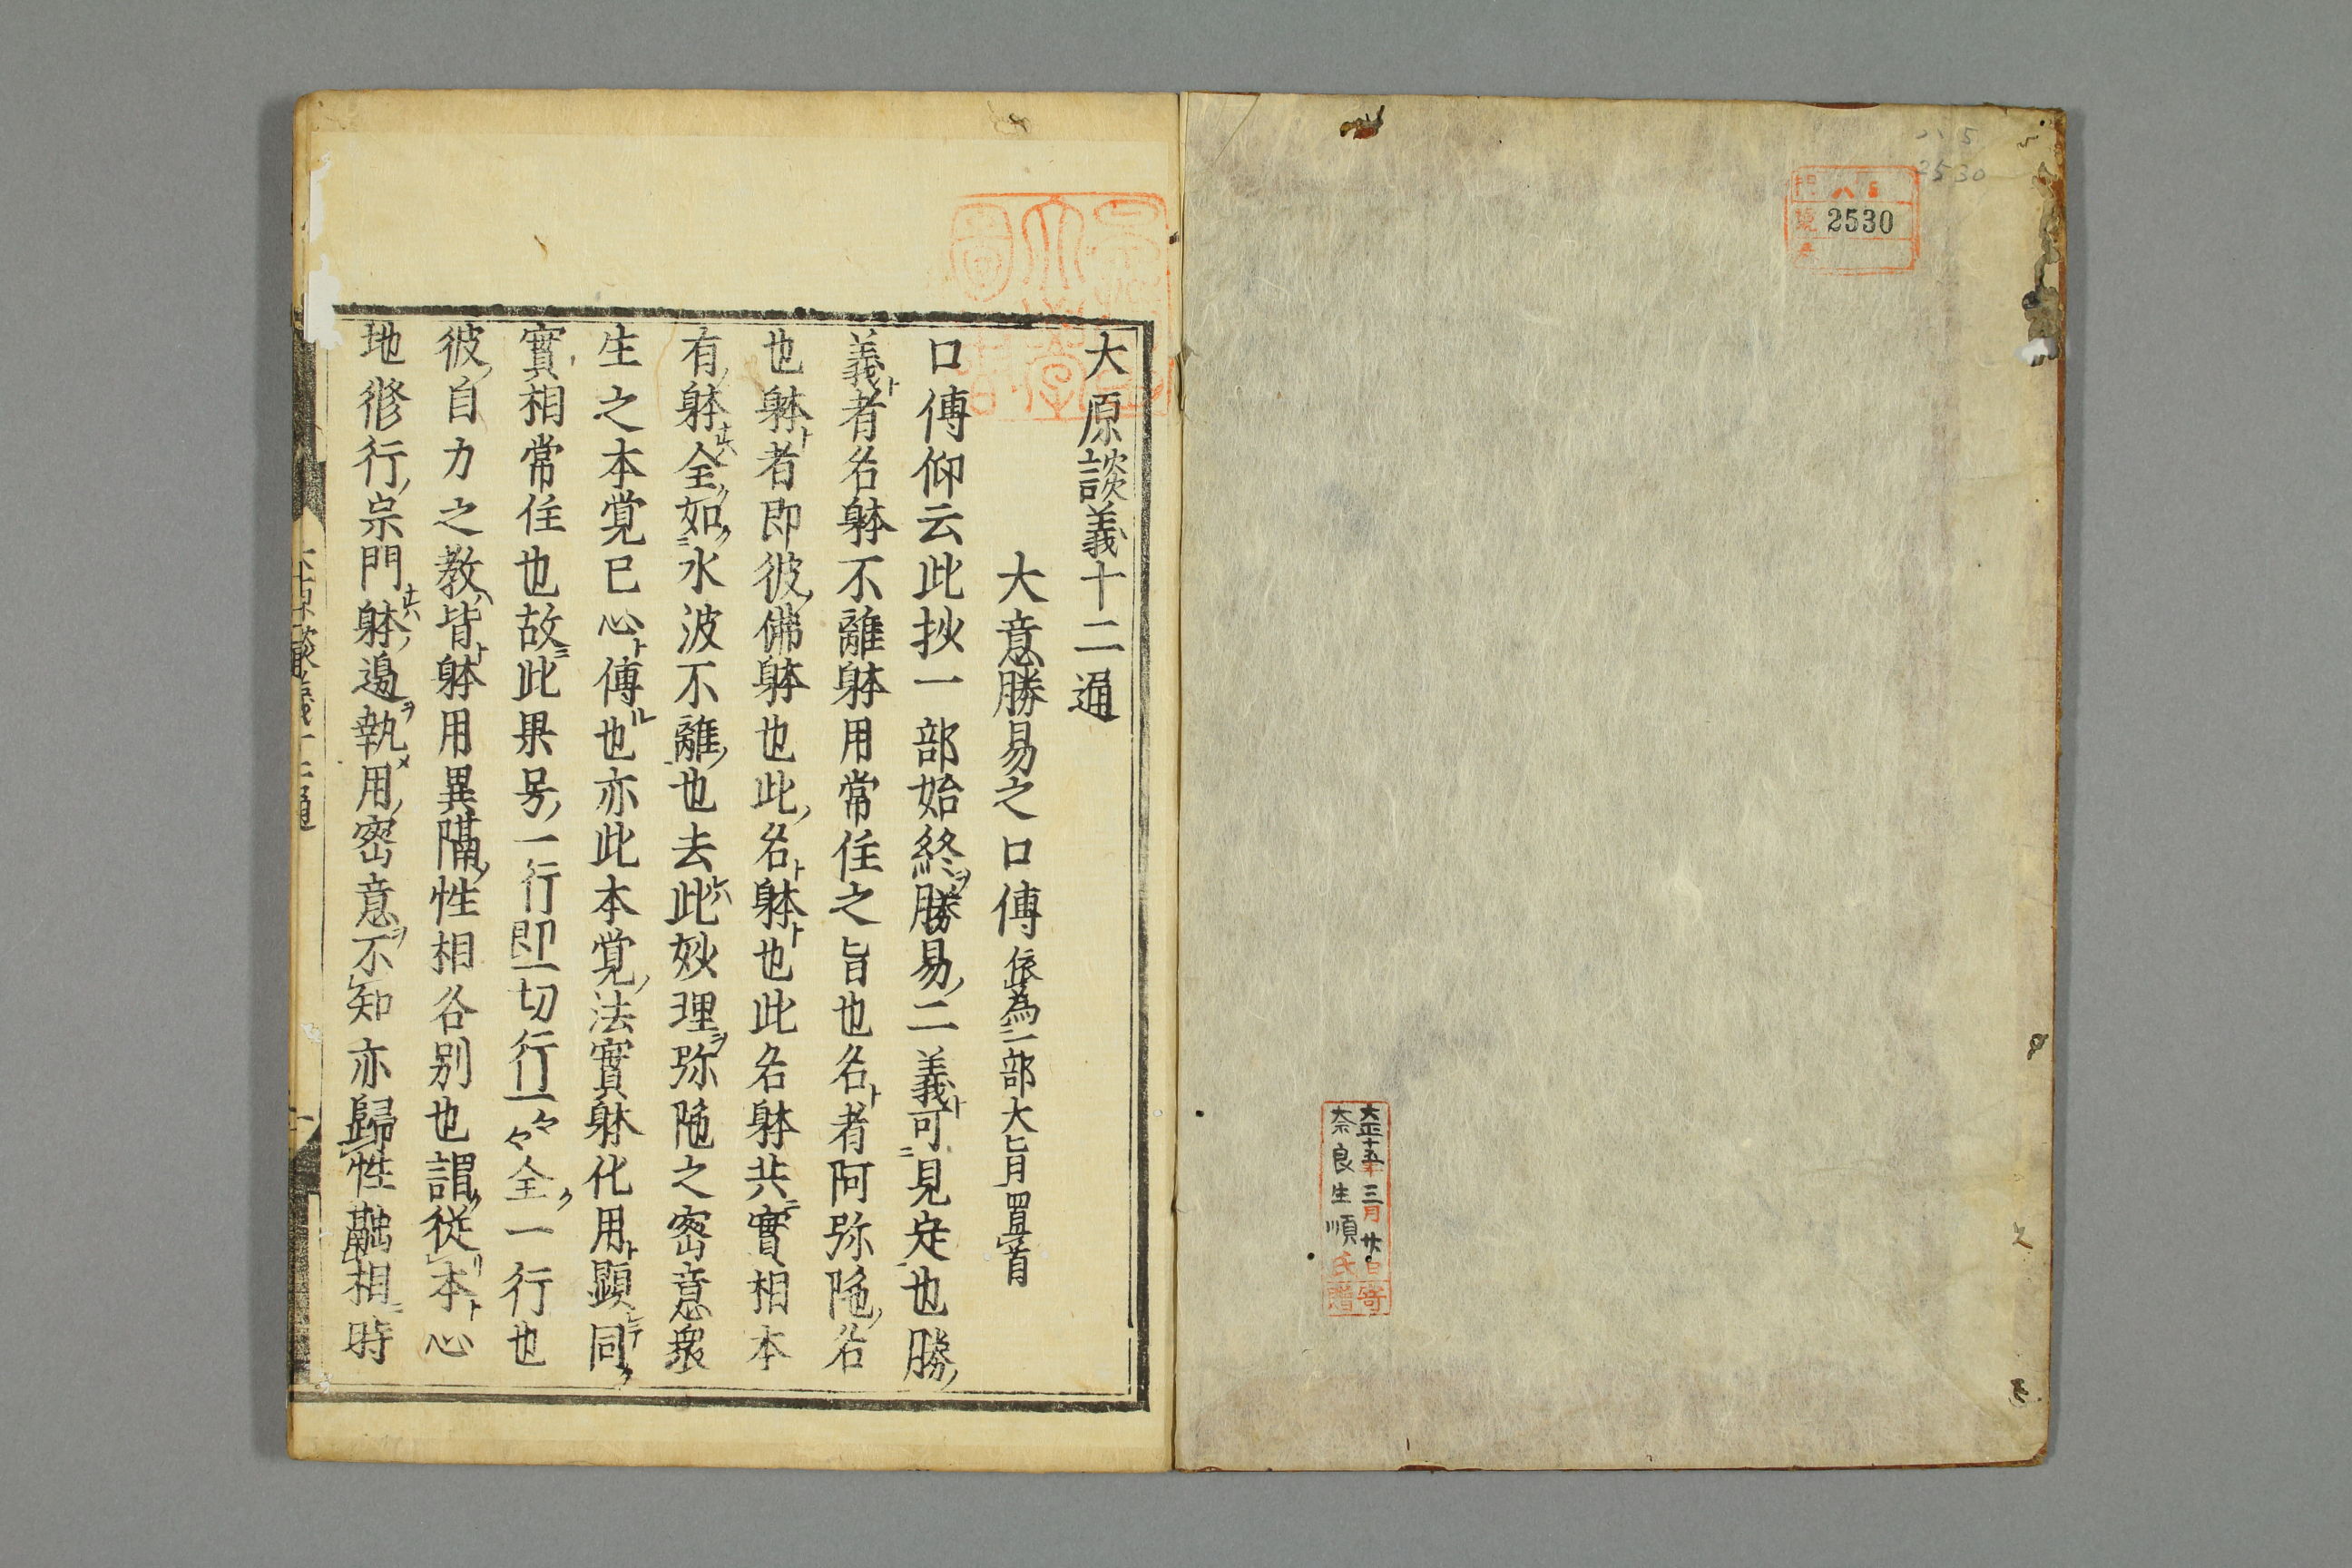 八5
2530
八5
2530
大正十五年三月廿日寄
奈良生順氏贈
大原談義十二通
大意勝易之口傳 依為一部大旨置首
口傳仰云此抄一部始終勝易二義可見定也勝
義者名躰不離躰用常住之旨也名者阿弥陁名
也躰者即彼佛躰也此名躰也此名躰共實相本
有躰全如水波不離也去此妙理弥陁之密意衆
生之本覚已心傳也亦此本覚法實躰化用顕同
實相常住也故此果号一行即一切行一々々全一行也
彼自力之教皆躰用異隔性相各別也謂従本心
地修行宗門躰邊執用密意不知亦歸性融相時
大原談義十二通